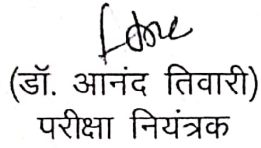 (डॉ. आनंद तिवारी)
परीक्षा नियंत्रक